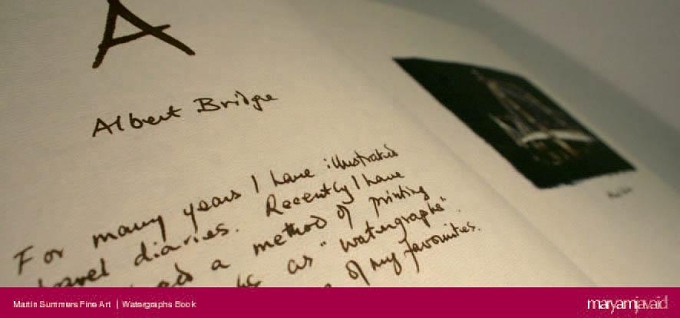 A
Albert Bridge
For many years I have illustrated
travel diaries. Recently I have
a method of printing
as "watergraphs"
of my favourites.
Martin Summers Fine Art | Watergraphs Book
maryamjavaid